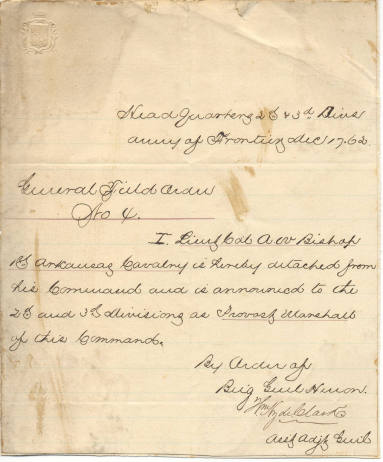 Head Quarters 2d & 3rd Divs
Army of Frontier Dec 17. 62
General Field Order
No 4.
I. Lieut Col A. W Bishop
1st Arkansas Cavalry is hereby detached from
his Command and is announced to the
2d and 3d divisions as Provost Marshall
of this Command.
By Order of
Brig Genl Herron.
Wm Hyde Clark
Asst Adjt Genl